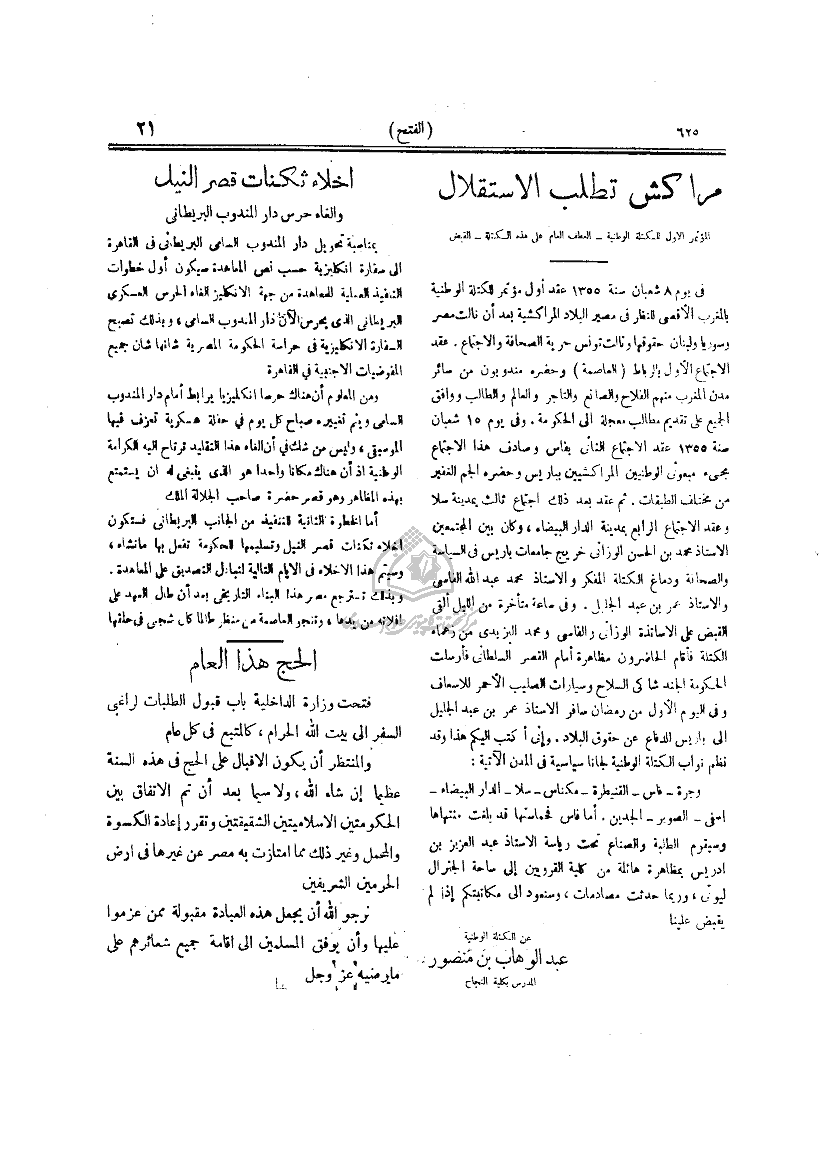 ٦٢٥
(الفتح)
٢١
مراكش تطلب الاستقلال
المؤتمر الاول للكتلة الوطنية ــ العطف العام على هذه الكتلة ــ القبض
فى يوم ٨ شعبان سنة ١٣٥٥ عقد أول مؤتمر للكتلة الوطنية
بالمغرب الأقصى للنظر فى مصير البلاد المراكشية بعد أن نالت مصر
وسوريا ولبنان حقوقها ونالت تونس حرية الصحافة والاجتماع . عقد
الاجتماع الأول بالرباط (العاصمة) وحضره مندوبون من سائر
مدن المغرب منهم الفلاح والصانع والتاجر والعالم والطالب ووافق
الجميع على تقديم مطالب معجلة الى الحكومة . وفى يوم ١٥ شعبان
سنة ١٣٥٥ عقد الاجتماع الثانى بفاس وصادف هذا الاجتماع
مجىء مبعوثى الوطنيين المراكشيين بباريس وحضره الجم الغفير
من مختلف الطبقات . ثم عقد بعد ذلك اجتماع ثالث بمدينة سلا
وعقد الاجتماع الرابع بمدينة الدار البيضاء ، وكان بين المجتمعين
الاستاذ محمد بن الحسن الوزانى خريج جامعات باريس فى السياسة
والصحافة ودماغ الكتلة المفكر والاستاذ محمد عبد الله الفاسى
والاستاذ عمر بن عبد الجليل . وفى ساعة متأخرة من الليل ألقى
القبض على الاساتذة الوزانى والفاسى ومحمد اليزيدى من زعماء
الكتلة فأقام الحاضرون مظاهرة أمام القصر السلطانى فأرسلت
الحكومة الجند شاكى السلاح وسيارات الصليب الأحمر للاسعاف
وفى اليوم الأول من رمضان سافر الاستاذ عمر بن عبد الجليل
الى باريس للدفاع عن حقوق البلاد . وإنى أكتب اليكم هذا وقد
نظم نواب الكتلة الوطنية لجانا سياسية فى المدن الآتية :
وجرة ــ فاس ــ القنيطرة ــ مكناس ــ سلا ــ الدار البيضاء ــ
اسفى ــ الصوير ــ الجدين . أما فاس فحماستها قد بلغت منتهاها
وسيقوم الطلبة والصناع تحت رياسة الاستاذ عبد العزيز بن
ادريس بمظاهرة هائلة من كلية القرويين إلى ساحة الجنرال
ليوتى ، وربما حدثت مصادمات ، وسنعود الى مكاتبتكم إذا لم
يقبض علينا
عن الكتلة الوطنية
عبد الوهاب بن منصور
المدرس بكلية النجاح
اخلاء ثكنات قصر النيل
والغاء حرس دار المندوب البريطانى
بمناسبة تحويل دار المندوب السامى البريطانى فى القاهرة
الى سفارة انكليزية حسب نص المعاهدة سيكون أول خطوات
التنفيذ العملية للمعاهدة من جهة الانكليز الغاء الحرس العسكرى
البريطانى الذى يحرس الآن دار المندوب السامى ، وبذلك تصبح
السفارة الانكليزية فى حراسة الحكومة المصرية شانها شان جميع
المفوضيات الاجنبية فى القاهرة
ومن المعلوم أن هناك حرسا انكليزيا يرابط أمام دار المندوب
السامى ويتم تغييره صباح كل يوم فى حفلة عسكرية تعزف فيها
الموسيقى ، وليس من شك فى أن الغاء هذا التقليد ترتاح اليه الكرامة
الوطنية اذ أن هناك مكانا واحدا هو الذى ينبغى له ان يستمتع
بهذه المظاهر وهو قصر حضرة صاحب الجلالة الملك
أما الخطوة الثانية للتنفيذ من الجانب البريطانى فستكون
اخلاء ثكنات قصر النيل وتسليمها للحكومة تفعل بها ماتشاء ،
وسيتم هذا الاخلاء فى الايام التالية لتبادل التصديق على المعاهدة .
وبذلك تسترجع مصر هذا البناء التاريخى بعد أن طال العهد على
افلاته من يدها ، وتنجو العاصمة من منظر طالما كان شجى فى حلقها
الحج هذا العام
فتحت وزارة الداخلية باب قبول الطلبات لراغبى
السفر الى بيت الله الحرام ، كالمتبع فى كل عام
والمنتظر أن يكون الاقبال على الحج فى هذه السنة
عظيما إن شاء الله ، ولا سيما بعد أن تم الاتفاق بين
الحكومتين الاسلاميتين الشقيقتين وتقرر إعادة الكسوة
والمحمل وغير ذلك مما امتازت به مصر عن غيرها فى ارض
الحرمين الشريفين
نرجو الله أن يجعل هذه العبادة مقبولة ممن عزموا
عليها وأن يوفق المسلمين الى اقامة جميع شعائرهم على
مايرضيه عز وجل